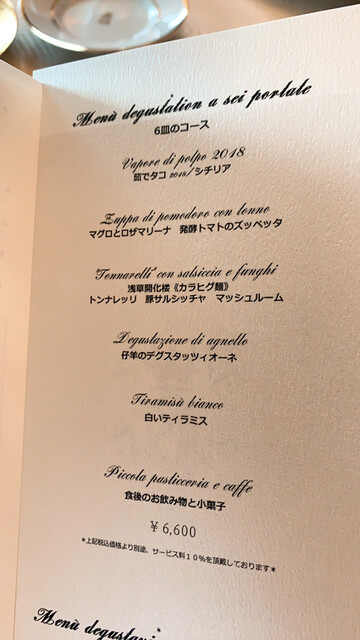 Menù degustation a sei portate
6皿のコース
Vapore di polpo 2018
茹でタコ 2018/シチリア
Zuppa di pomodoro con tonno
マグロとロザマリーナ 発酵トマトのズッペッタ
"Tonnarelli" con salsiccia e funghi
浅草開化楼《カラヒグ麺》
トンナレッリ 豚サルシッチャ マッシュルーム
Degustazione di agnello
仔羊のデグスタッツィオーネ
Tiramisù bianco
白いティラミス
Piccola pasticceria e caffe
食後のお飲み物と小菓子
¥ 6,600
*上記税込価格より別途、サービス料10%を頂戴しております*
Menù